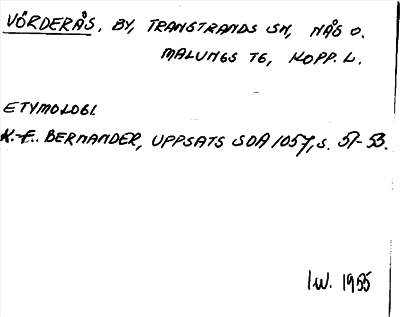 VÖRDERÅS, BY, TRANSTRANDS SN, NÅS O.
MALUNGS TG, KOPP. L.
ETYMOLOGI.
K.-E. BERNANDER, UPPSATS SDA 1057, S. 51-53.
IW. 1955